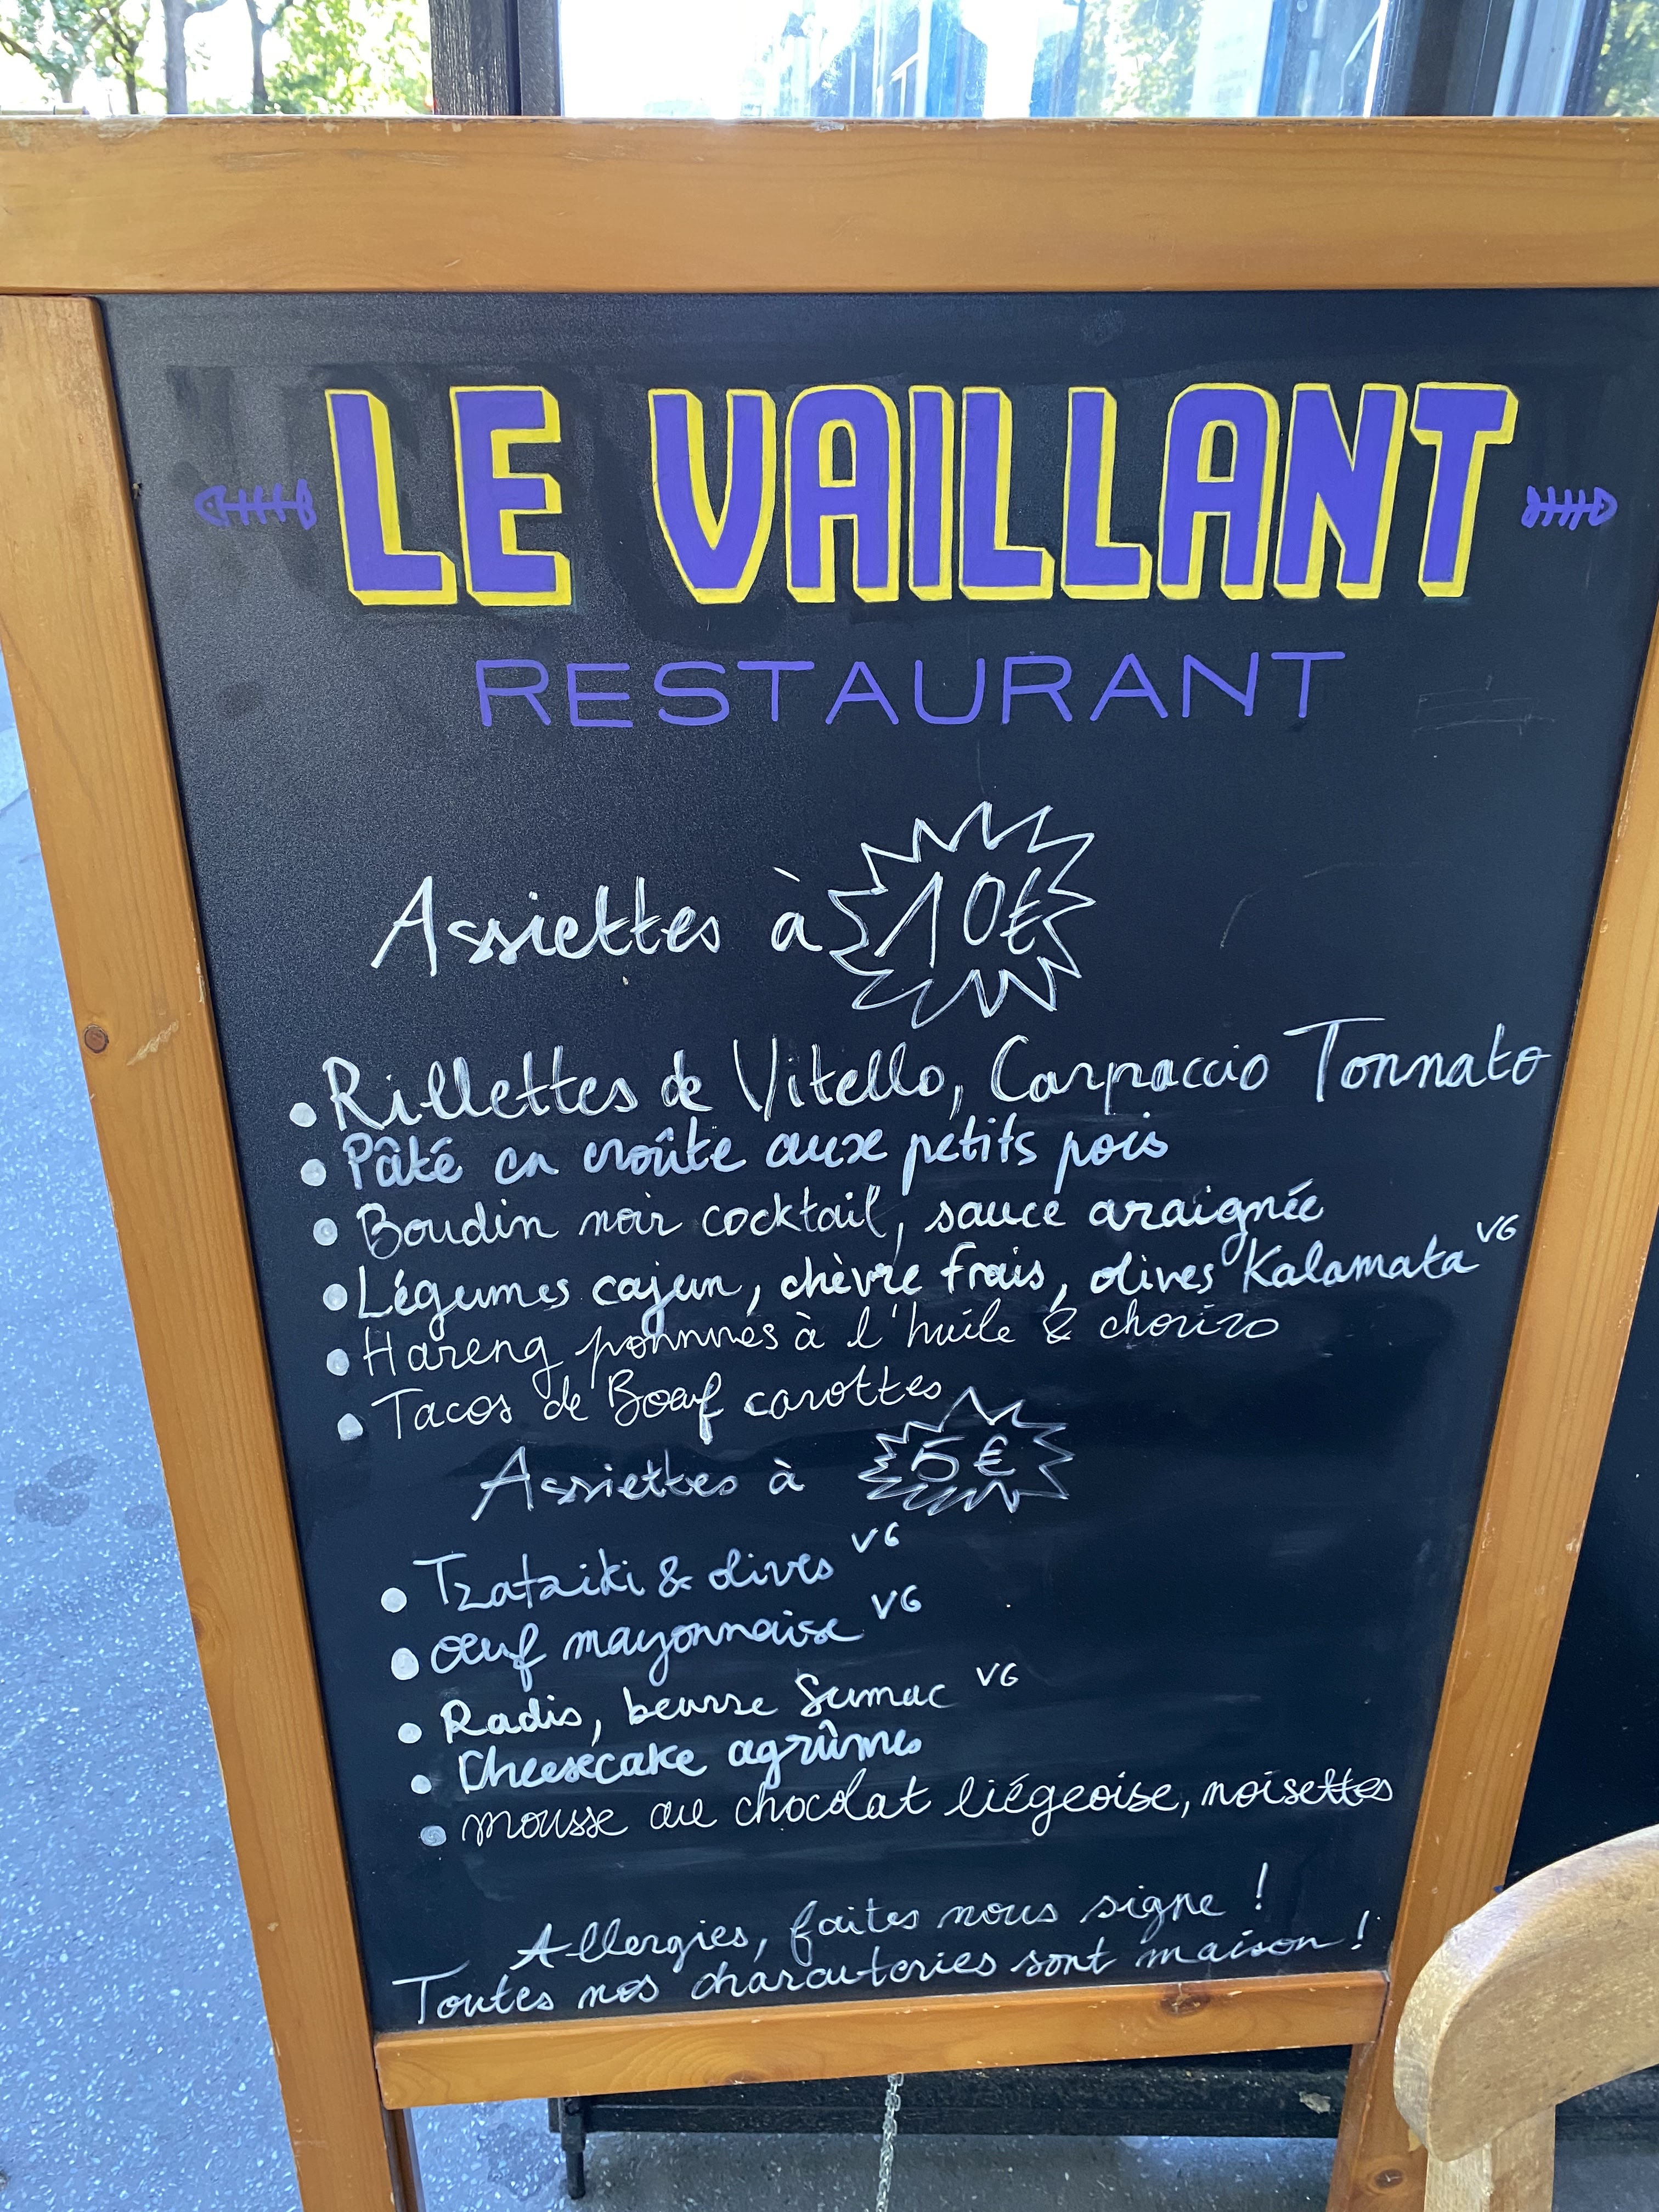 LE VAILLANT
RESTAURANT
Assiettes à 10€
• Rillettes de Vitello, Carpaccio Tonnato
• Pâté en croûte aux petits pois
• Boudin noir cocktail, sauce araignée
• Légumes cajun, chèvre frais, olives Kalamata VG
• Hareng pommes à l'huile & chorizo
• Tacos de Bœuf carottes
Assiettes à 5€
• Tzatziki & olives VG
• œuf mayonnaise VG
• Radis, beurre Sumac VG
• Cheesecake agrûmes
• mousse au chocolat liégeoise, noisettes
Allergies, faites nous signe !
Toutes nos charcuteries sont maison !